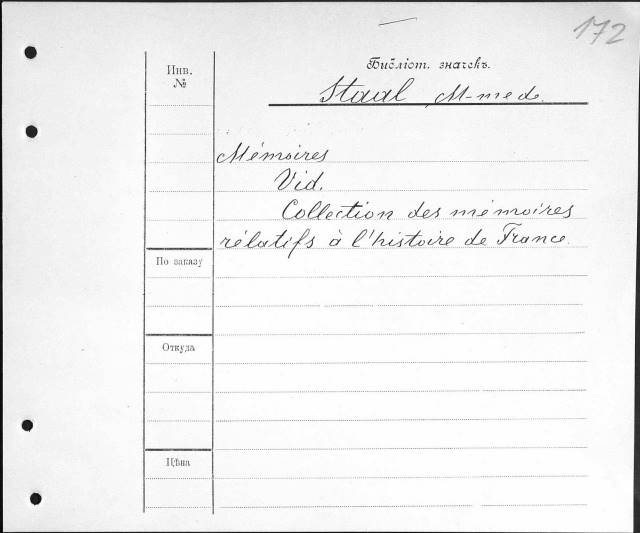 172
Инв.
№
Библіот. значекъ.
Staal M-me de.
Mémoires
Vid.
Collection des mémoires
rélatifs à l'histoire de France.
По заказу
Откуда
Цѣна